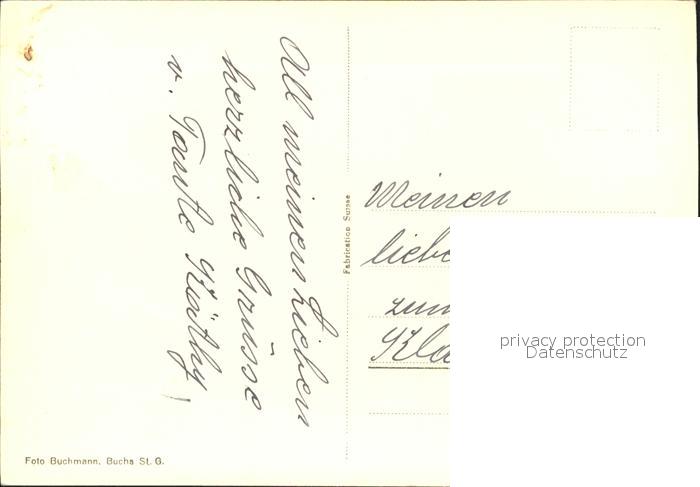 All meinen Lieben
herzliche Grüsse
v. Tante Käthy
Fabrication Suisse
Meinen
zum
privacy protection
Datenschutz
Foto Buchmann, Buchs St. G.